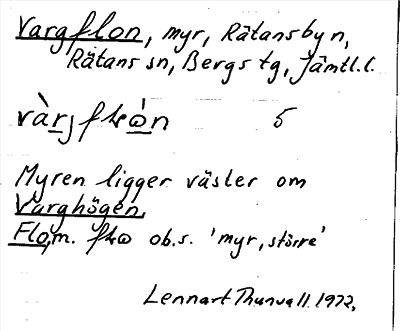 Vargflon, myr, Rätansbyn,
Rätans sn, Bergs tg, Jämtl.l.
5
Myren ligger väster om
Varghögen.
Flo, m. ob.s. 'myr, större'
Lennart Thunvall. 1972.